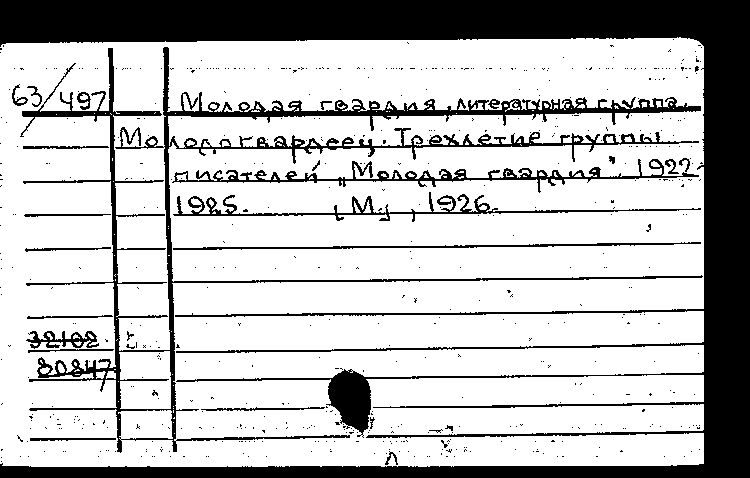 63/497 Молодая гвардия, литературная группа.
Молодогвардеец. Трехлетие группы
писателей „Молодая гвардия". 1922-
1925. [М.], 1926.
32102
80847